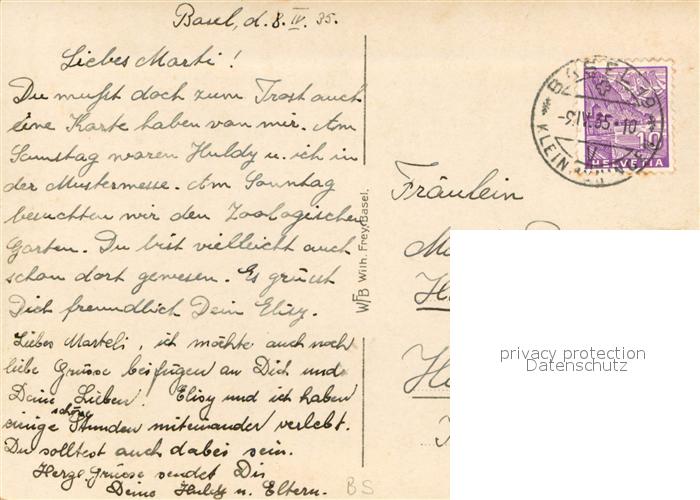 Basel, d. 8. IV. 35.
Liebes Marti!
Du mußt doch zum Trost auch
eine Karte haben von mir. Am
Samstag waren Huldy u. ich in
der Mustermesse. Am Sonntag
besuchten wir den Zoologischen
Garten. Du bist vielleicht auch
schon dort gewesen. Es grüsst
Dich freundlich Dein Elisy.
Liebes Marteli, ich möchte auch noch
liebe Grüsse beifügen an Dich und
Deine Lieben! Elisy und ich haben
einige schöne Stunden miteinander verlebt.
Du solltest auch dabei sein.
Herzl. Grüsse sendet Dir
Deine Huldy u. Eltern.
BS
WFB Wilh. Frey, Basel.
BASEL 19
-9.IV.35-10
KLEIN
10
HELVETIA
Fräulein
privacy protection
Datenschutz